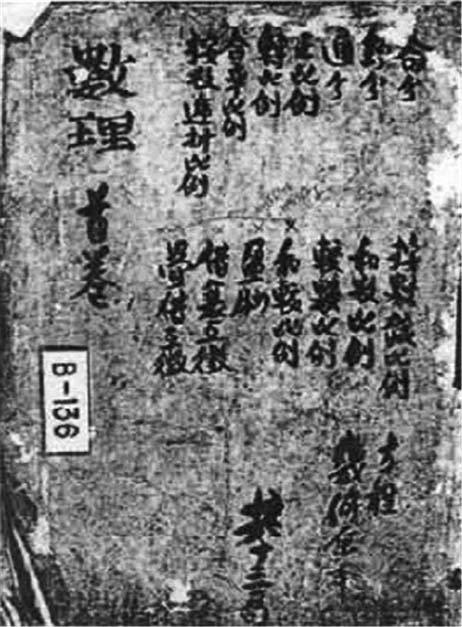 合分
約分
通分
正比例
轉比例
合率比例
按分遞折比例
比例
和數比例
較數比例
和較比例
盈朒
借衰互徵
疊借互徵
方程
數理 首卷
B-136